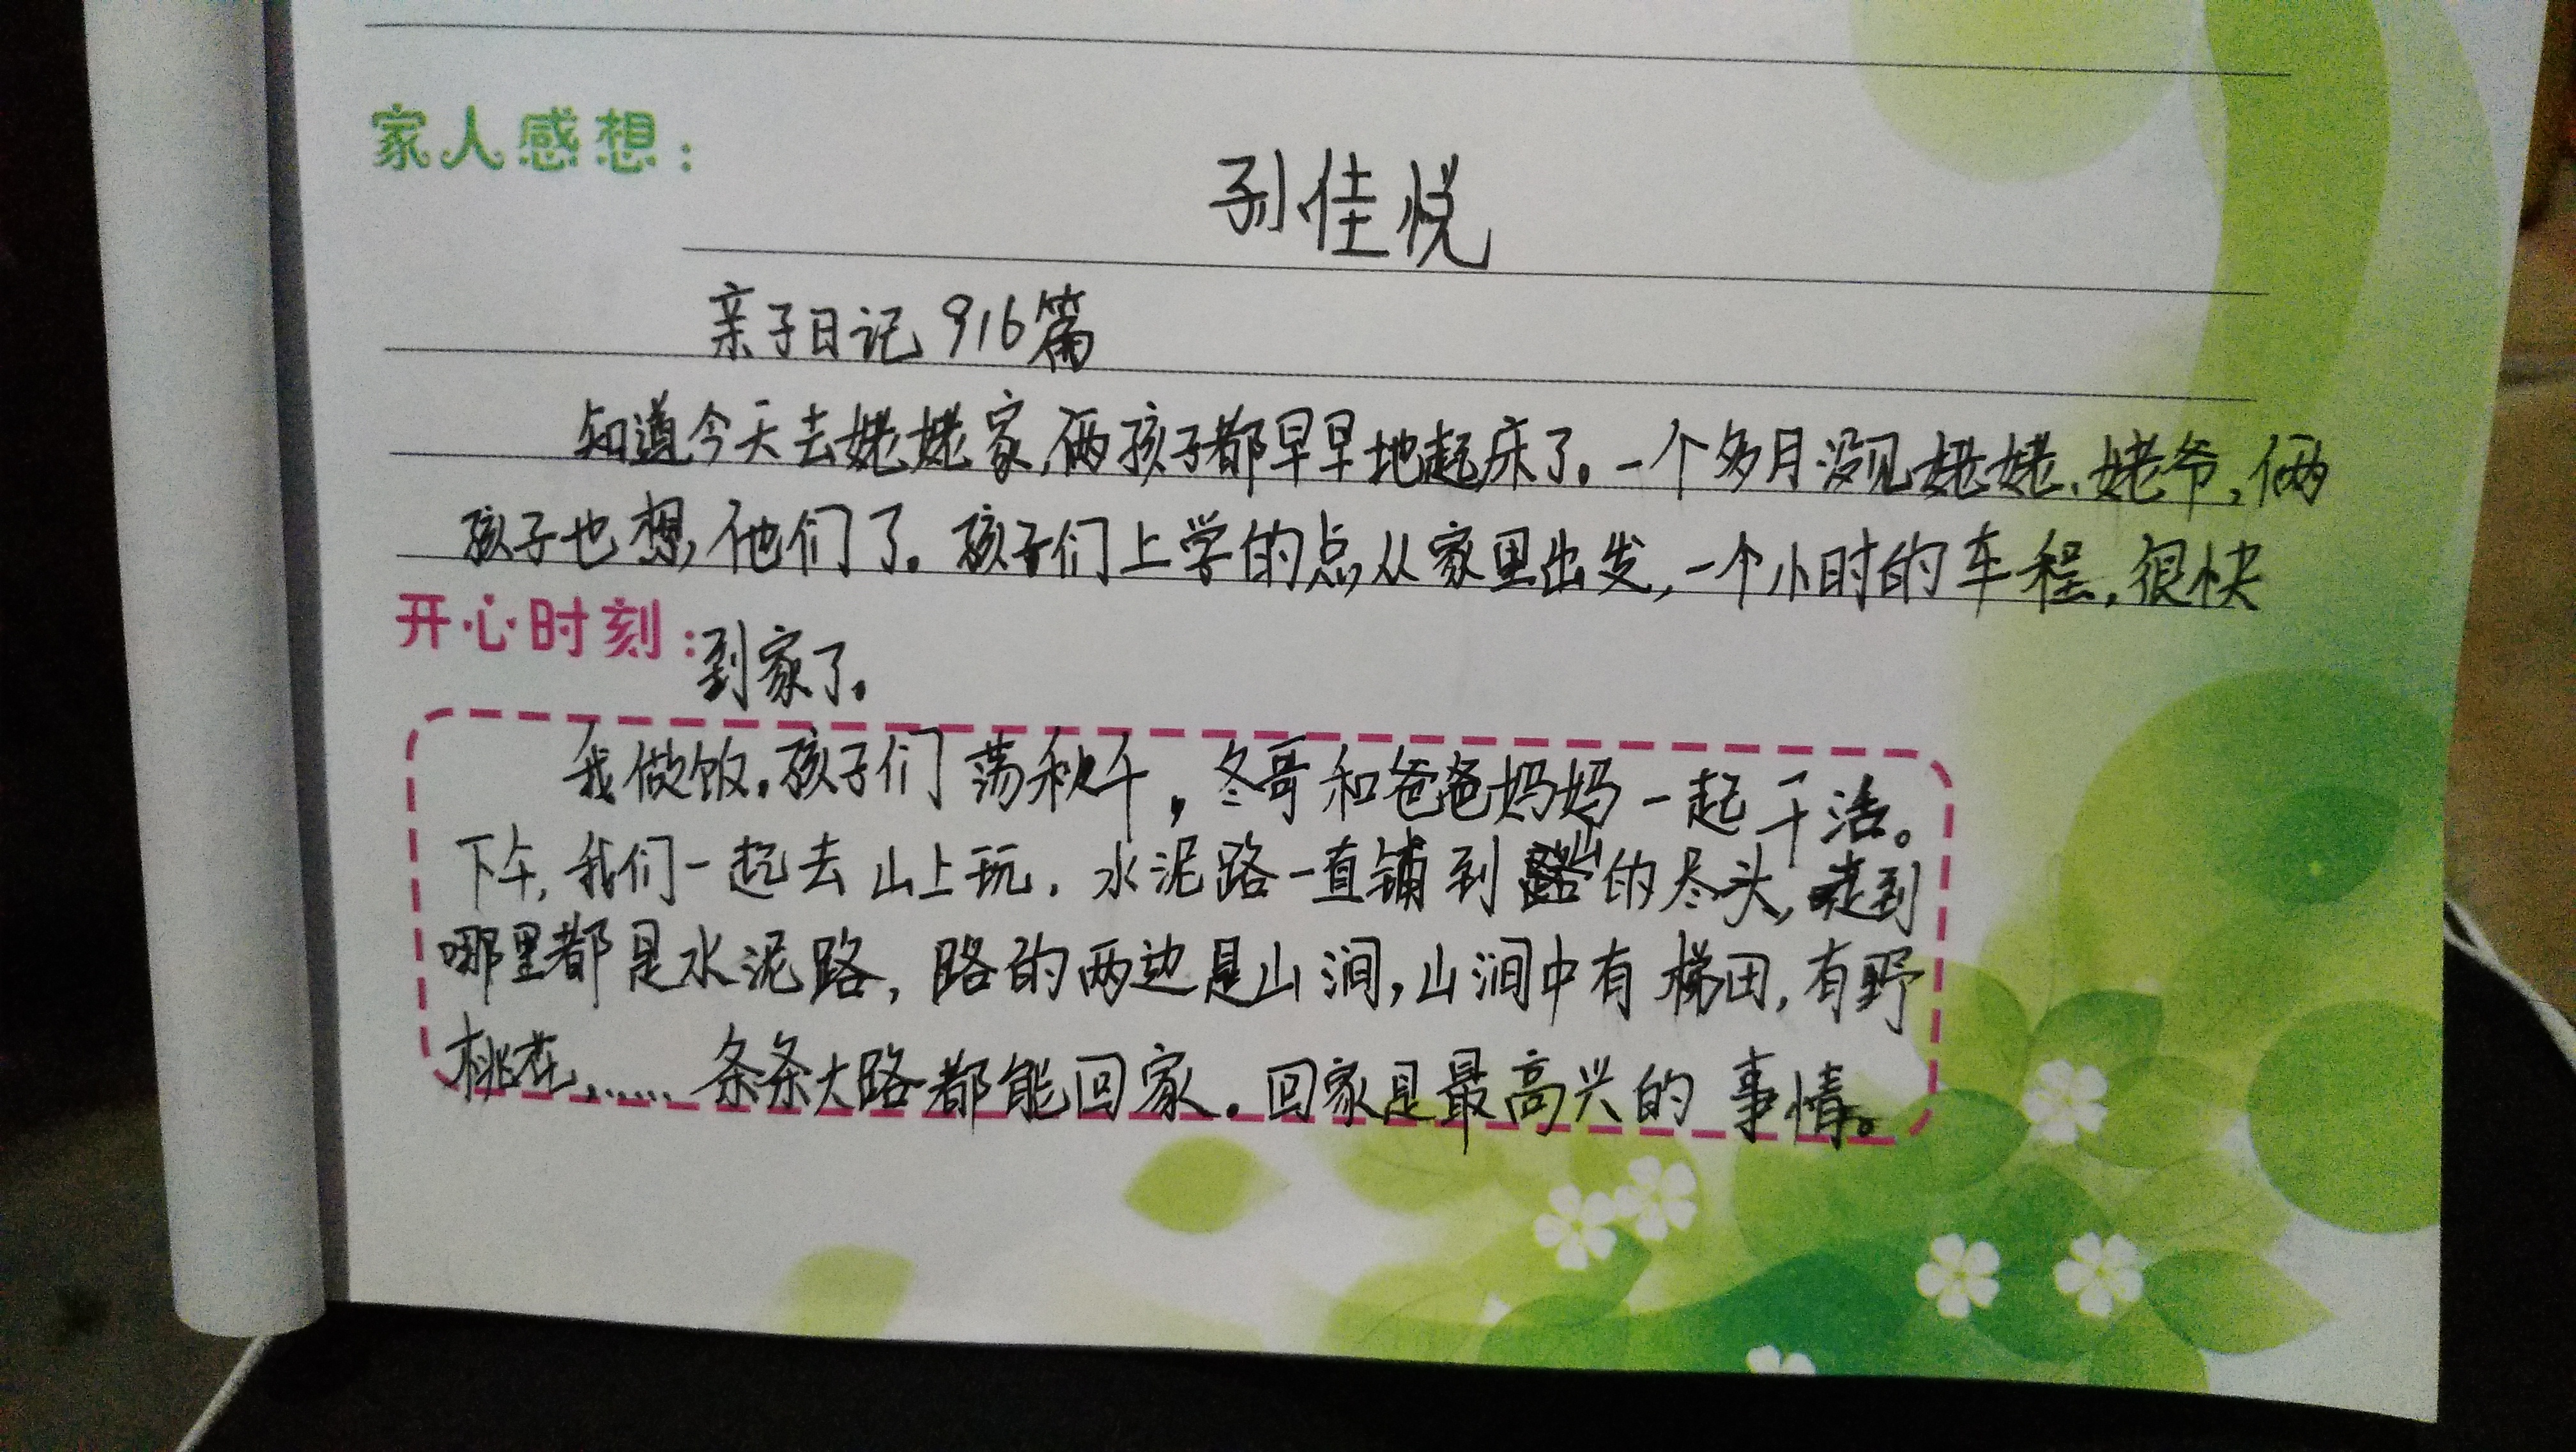 家人感想：
孙佳悦
亲子日记916篇
知道今天去姥姥家,俩孩子都早早地起床了。一个多月没见姥姥、姥爷,俩
孩子也想他们了。孩子们上学的点从家里出发,一个小时的车程,很快
开心时刻：到家了。
我做饭,孩子们荡秋千,冬哥和爸爸妈妈一起干活。
下午,我们一起去山上玩.水泥路一直铺到的尽头,走到
哪里都是水泥路,路的两边是山涧,山涧中有梯田,有野
桃花……条条大路都能回家。回家是最高兴的事情。